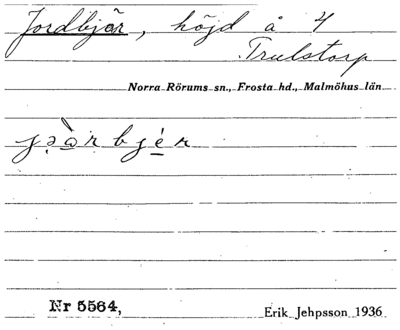 Jordbjär, höjd å 4
Trulstorp
Norra Rörums sn., Frosta hd., Malmöhus län
Nr 5564,
Erik Jehpsson 1936